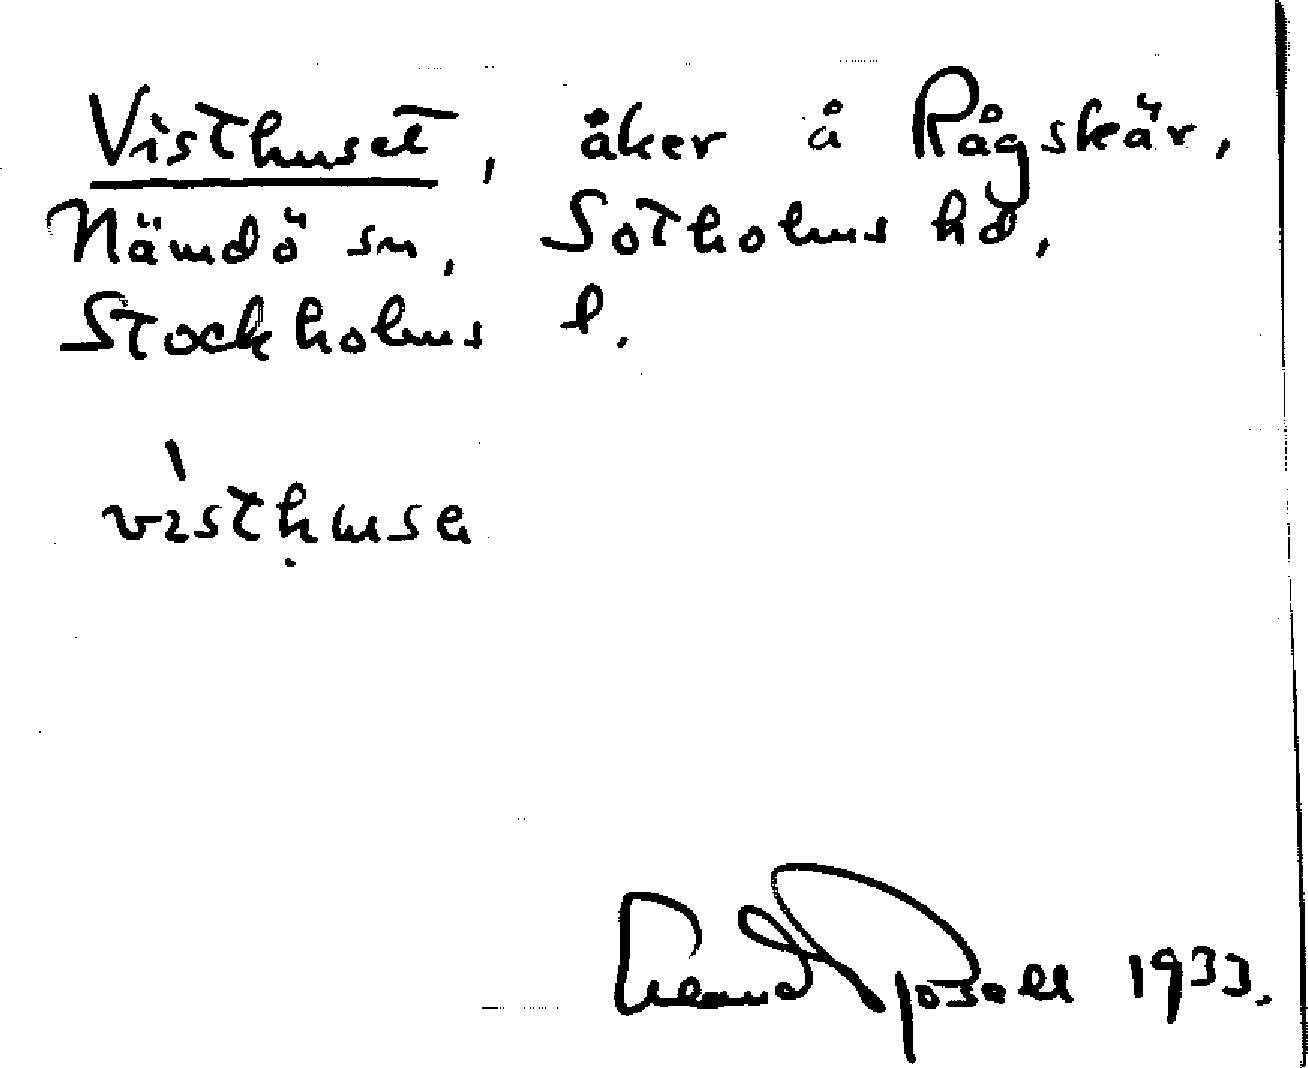 Visthuset, åker å Rågskär,
Nämdö sn, Sotholms hd,
Stockholms l.
vìsthu̇sa
1933.